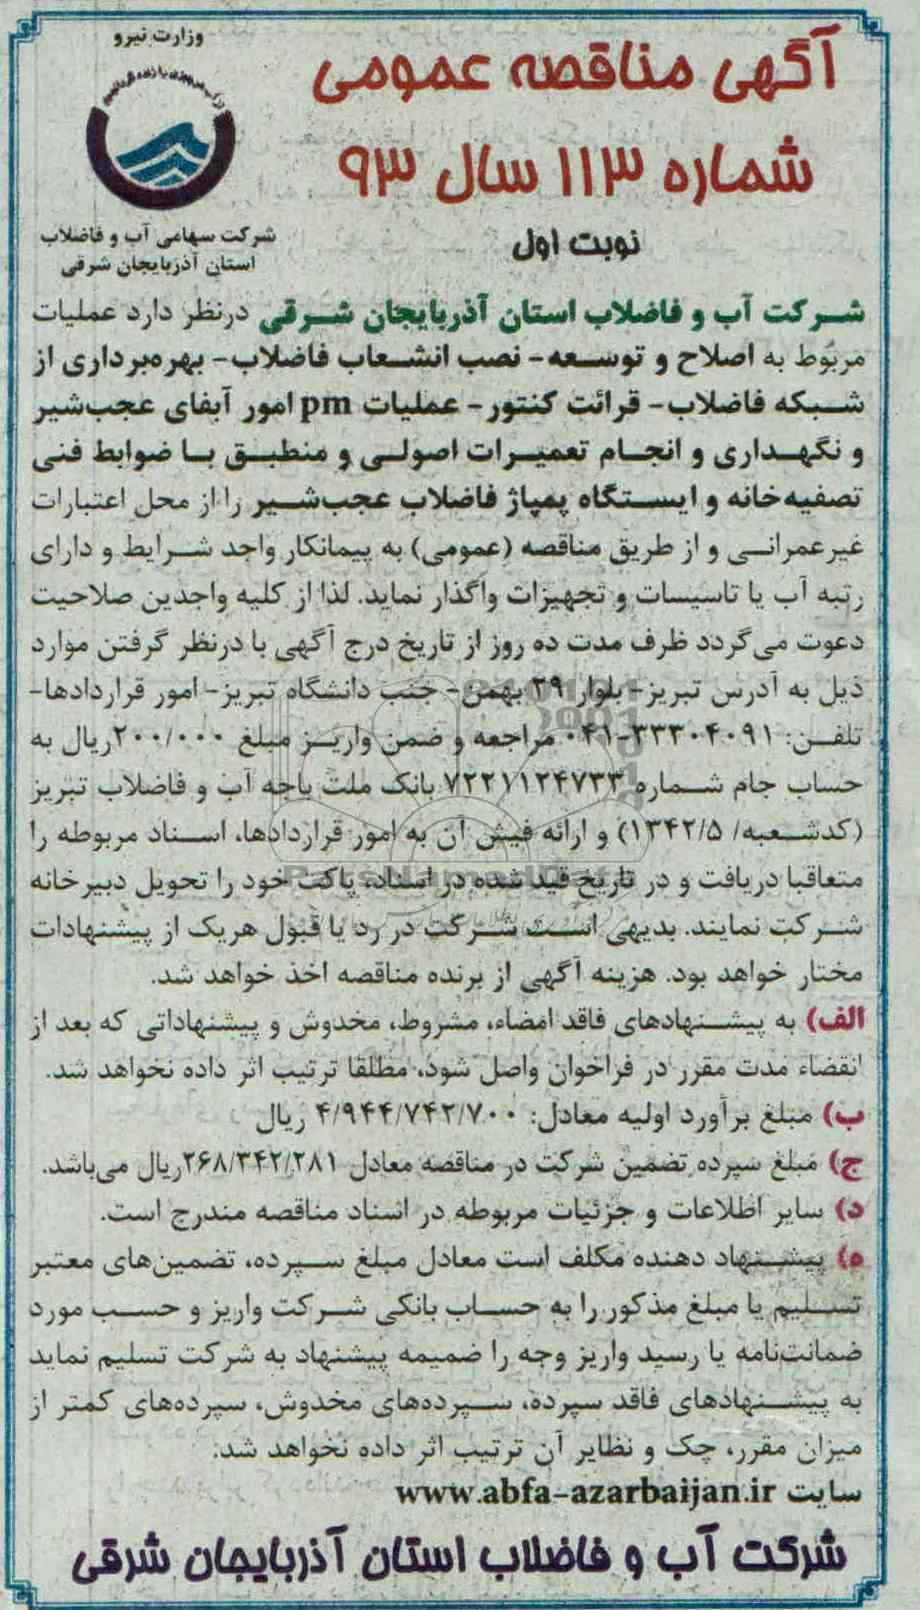 وزارت نیرو
آگهی مناقصه عمومی
شماره ۱۱۳ سال ۹۳
نوبت اول
شرکت سهامی آب و فاضلاب
استان آذربایجان شرقی
شرکت آب و فاضلاب استان آذربایجان شرقی درنظر دارد عملیات
مربوط به اصلاح و توسعه- نصب انشعاب فاضلاب- بهره‌برداری از
شبکه فاضلاب- قرائت کنتور- عملیات pm امور آبفای عجب‌شیر
و نگهداری و انجام تعمیرات اصولی و منطبق با ضوابط فنی
تصفیه‌خانه و ایستگاه پمپاژ فاضلاب عجب‌شیر را از محل اعتبارات
غیرعمرانی و از طریق مناقصه (عمومی) به پیمانکار واجد شرایط و دارای
رتبه آب یا تاسیسات و تجهیزات واگذار نماید. لذا از کلیه واجدین صلاحیت
دعوت می‌گردد ظرف مدت ده روز از تاریخ درج آگهی با درنظر گرفتن موارد
ذیل به آدرس تبریز- بلوار ۲۹ بهمن- جنب دانشگاه تبریز- امور قراردادها-
تلفن: ۳۳۳۰۴۰۹۱-۰۴۱ مراجعه و ضمن واریز مبلغ ۲۰۰/۰۰۰ریال به
حساب جام شماره ۷۲۲۱۱۲۴۷۳۳ بانک ملت باجه آب و فاضلاب تبریز
(کدشعبه/ ۱۳۴۲/۵) و ارائه فیش آن به امور قراردادها، اسناد مربوطه را
متعاقبا دریافت و در تاریخ قید شده در اسناد، پاکت خود را تحویل دبیرخانه
شرکت نمایند. بدیهی است شرکت در رد یا قبول هریک از پیشنهادات
مختار خواهد بود. هزینه آگهی از برنده مناقصه اخذ خواهد شد.
الف) به پیشنهادهای فاقد امضاء، مشروط، مخدوش و پیشنهاداتی که بعد از
انقضاء مدت مقرر در فراخوان واصل شود، مطلقا ترتیب اثر داده نخواهد شد.
ب) مبلغ برآورد اولیه معادل: ۴/۹۴۴/۷۴۲/۷۰۰ ریال
ج) مبلغ سپرده تضمین شرکت در مناقصه معادل ۲۶۸/۳۴۲/۲۸۱ریال می‌باشد.
د) سایر اطلاعات و جزئیات مربوطه در اسناد مناقصه مندرج است.
ه) پیشنهاد دهنده مکلف است معادل مبلغ سپرده، تضمین‌های معتبر
تسلیم یا مبلغ مذکور را به حساب بانکی شرکت واریز و حسب مورد
ضمانت‌نامه یا رسید واریز وجه را ضمیمه پیشنهاد به شرکت تسلیم نماید
به پیشنهادهای فاقد سپرده، سپرده‌های مخدوش، سپرده‌های کمتر از
میزان مقرر، چک و نظایر آن ترتیب اثر داده نخواهد شد.
سایت www.abfa-azarbaijan.ir
شرکت آب و فاضلاب استان آذربایجان شرقی
ParsNamadData